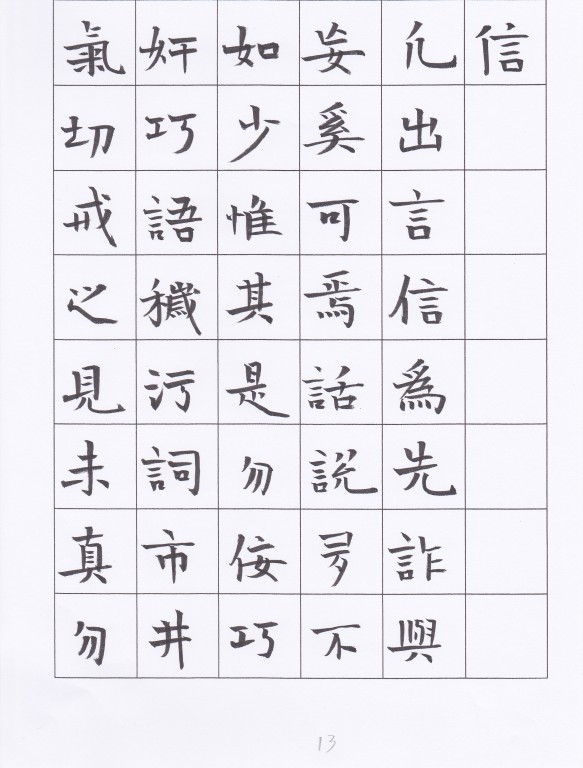 信
凡出言信爲先詐與
妄奚可焉話說多不
如少惟其是勿佞巧
奸巧語穢污詞市井
氣切戒之見未真勿
13